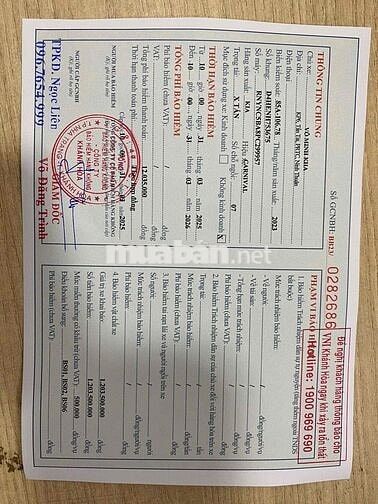 Số GCNBH: BB23/ 0282686
THÔNG TIN CHUNG
Chủ xe: VÕ MINH KHA
Địa chỉ:
Điện thoại
Biển kiểm soát: 85A-106.78 Tháng/năm sản xuất: 2023
Số khung:
Số máy:
Hãng sản xuất: KIA Hiệu CARNIVAL
Trọng tải: X TẤN Số chỗ ngồi: 07
Mục đích sử dụng xe: Kinh doanh Không kinh doanh X
THỜI HẠN BẢO HIỂM
Từ 10 giờ 00 ngày 31 tháng 03 năm 2025
Đến 10 giờ 00 ngày 31 tháng 03 năm 2026
TỔNG PHÍ BẢO HIỂM
Phí bảo hiểm (chưa VAT): đồng
VAT: đồng
Tổng phí bảo hiểm thanh toán: 12.035.000 đồng
Thời hạn thanh toán phí:
NGƯỜI MUA BẢO HIỂM
(Ký, ghi rõ họ tên)
NGƯỜI CẤP GCNBH
(Ký, ghi rõ họ tên)
TPKD. Ngọc Liên
GIÁM ĐỐC
Võ Đăng Trình
Đề nghị khách hàng thông báo cho
VNI Khánh Hòa ngay khi xảy ra tổn thất
Hotline: 1900 969 690
PHẠM VI BẢO HIỂM
1. Bảo hiểm Trách nhiệm dân sự tự nguyện (tăng thêm ngoài TNDS
bắt buộc)
Mức trách nhiệm bảo hiểm:
- Về người: đồng/người/vụ
- Về tài sản: đồng/vụ
- Tổng hạn mức trách nhiệm: đồng/vụ
Phí bảo hiểm (chưa VAT): đồng
2. Bảo hiểm Trách nhiệm dân sự của chủ xe đối với hàng hóa trên xe
Trọng tải: tấn
Mức trách nhiệm bảo hiểm: đồng/tấn
Phí bảo hiểm (chưa VAT): đồng
3. Bảo hiểm tai nạn lái xe và người ngồi trên xe
Số người: người
Mức trách nhiệm bảo hiểm: đồng/người/vụ
Phí bảo hiểm: đồng
4. Bảo hiểm vật chất xe
Giá trị xe khai báo: 1.203.500.000 đồng
Số tiền bảo hiểm: 1.203.500.000 đồng
Mức miễn thường có khấu trừ: 500.000 đồng/vụ
Điều khoản bổ sung: BS01, BS02, BS06
Phí bảo hiểm (chưa VAT): đồng
muaban.net